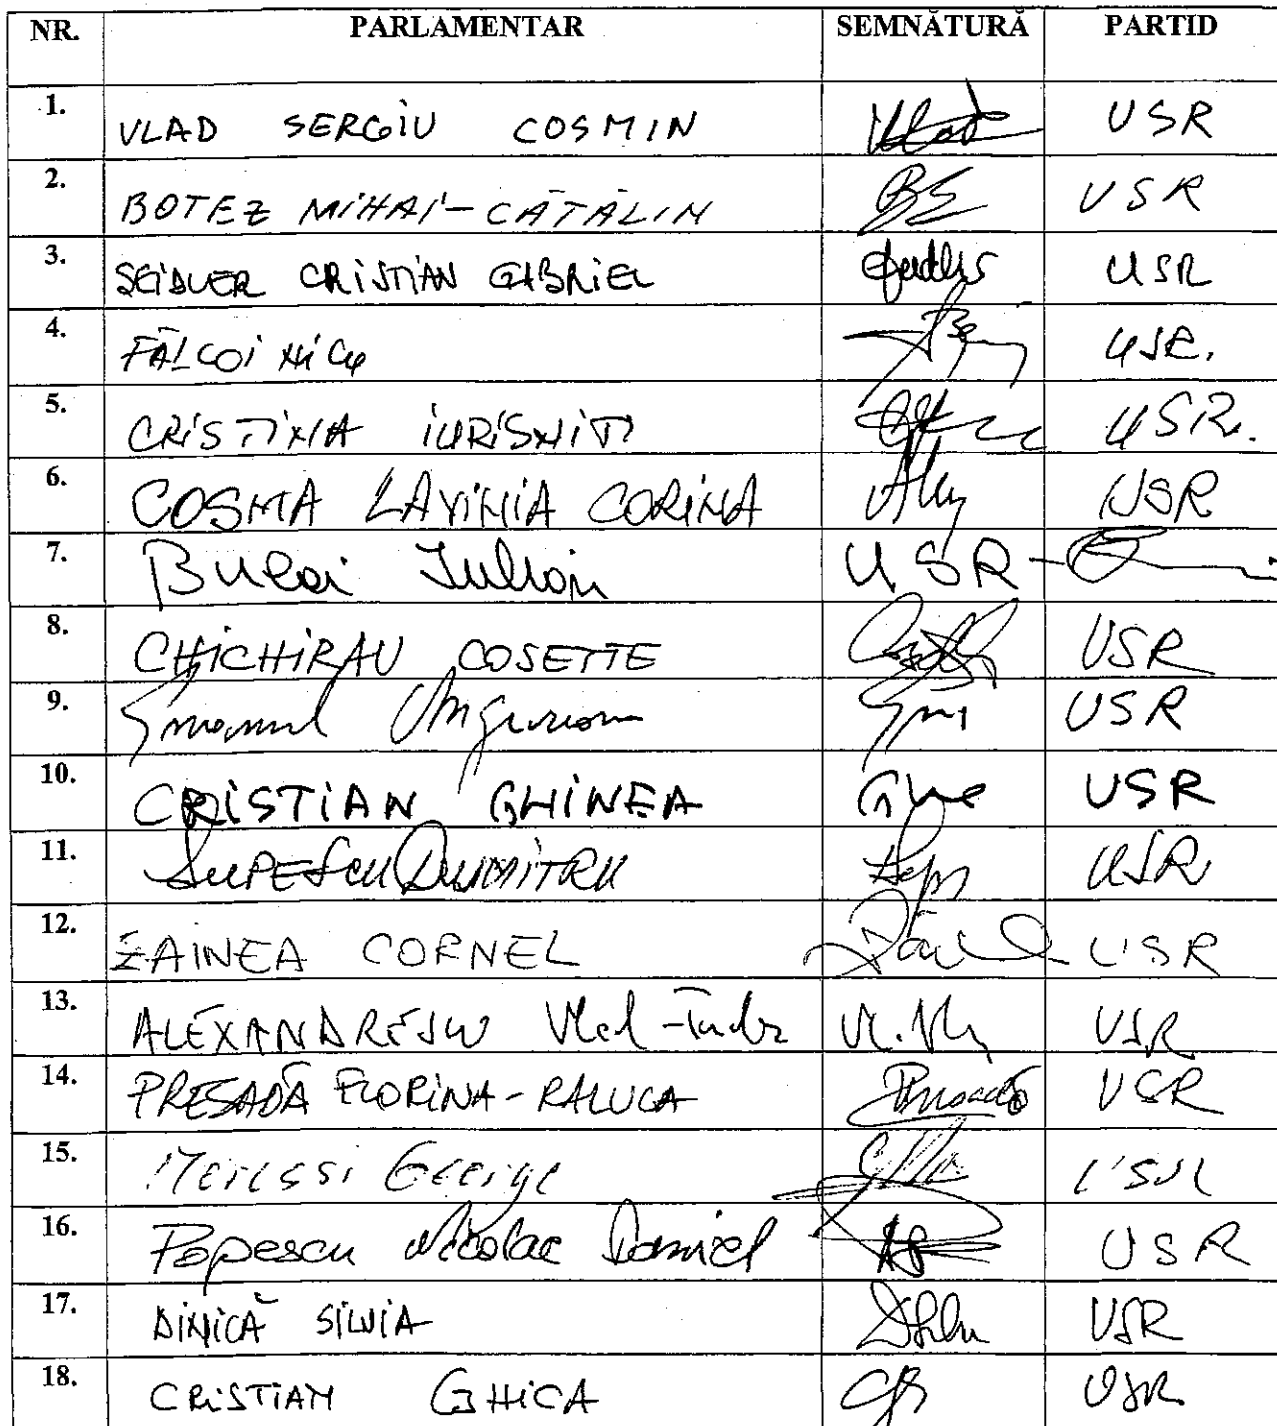 NR. PARLAMENTAR SEMNĂTURĂ PARTID
1. VLAD SERGIU COSMIN Vlad USR
2. BOTEZ MIHAI-CĂTĂLIN USR
3. SEIDLER CRISTIAN GABRIEL USR
4. FĂLCOI NICU USR.
5. CRISTINA IURIȘNIȚI USR.
6. COSMA LAVINIA CORINA USR
7. Bulai Iulian USR-
8. CHICHIRĂU COSETTE USR
9. Emanuel Ungureanu USR
10. CRISTIAN GHINEA USR
11. LUPESCU DUMITRU USR
12. ZAINEA CORNEL USR
13. ALEXANDRESCU Vlad-Tudor USR
14. PRESADĂ FLORINA-RALUCA Presadă USR
15. George USR
16. Popescu Nicolae Daniel USR
17. DINICĂ SILVIA USR
18. CRISTIAN GHICA USR